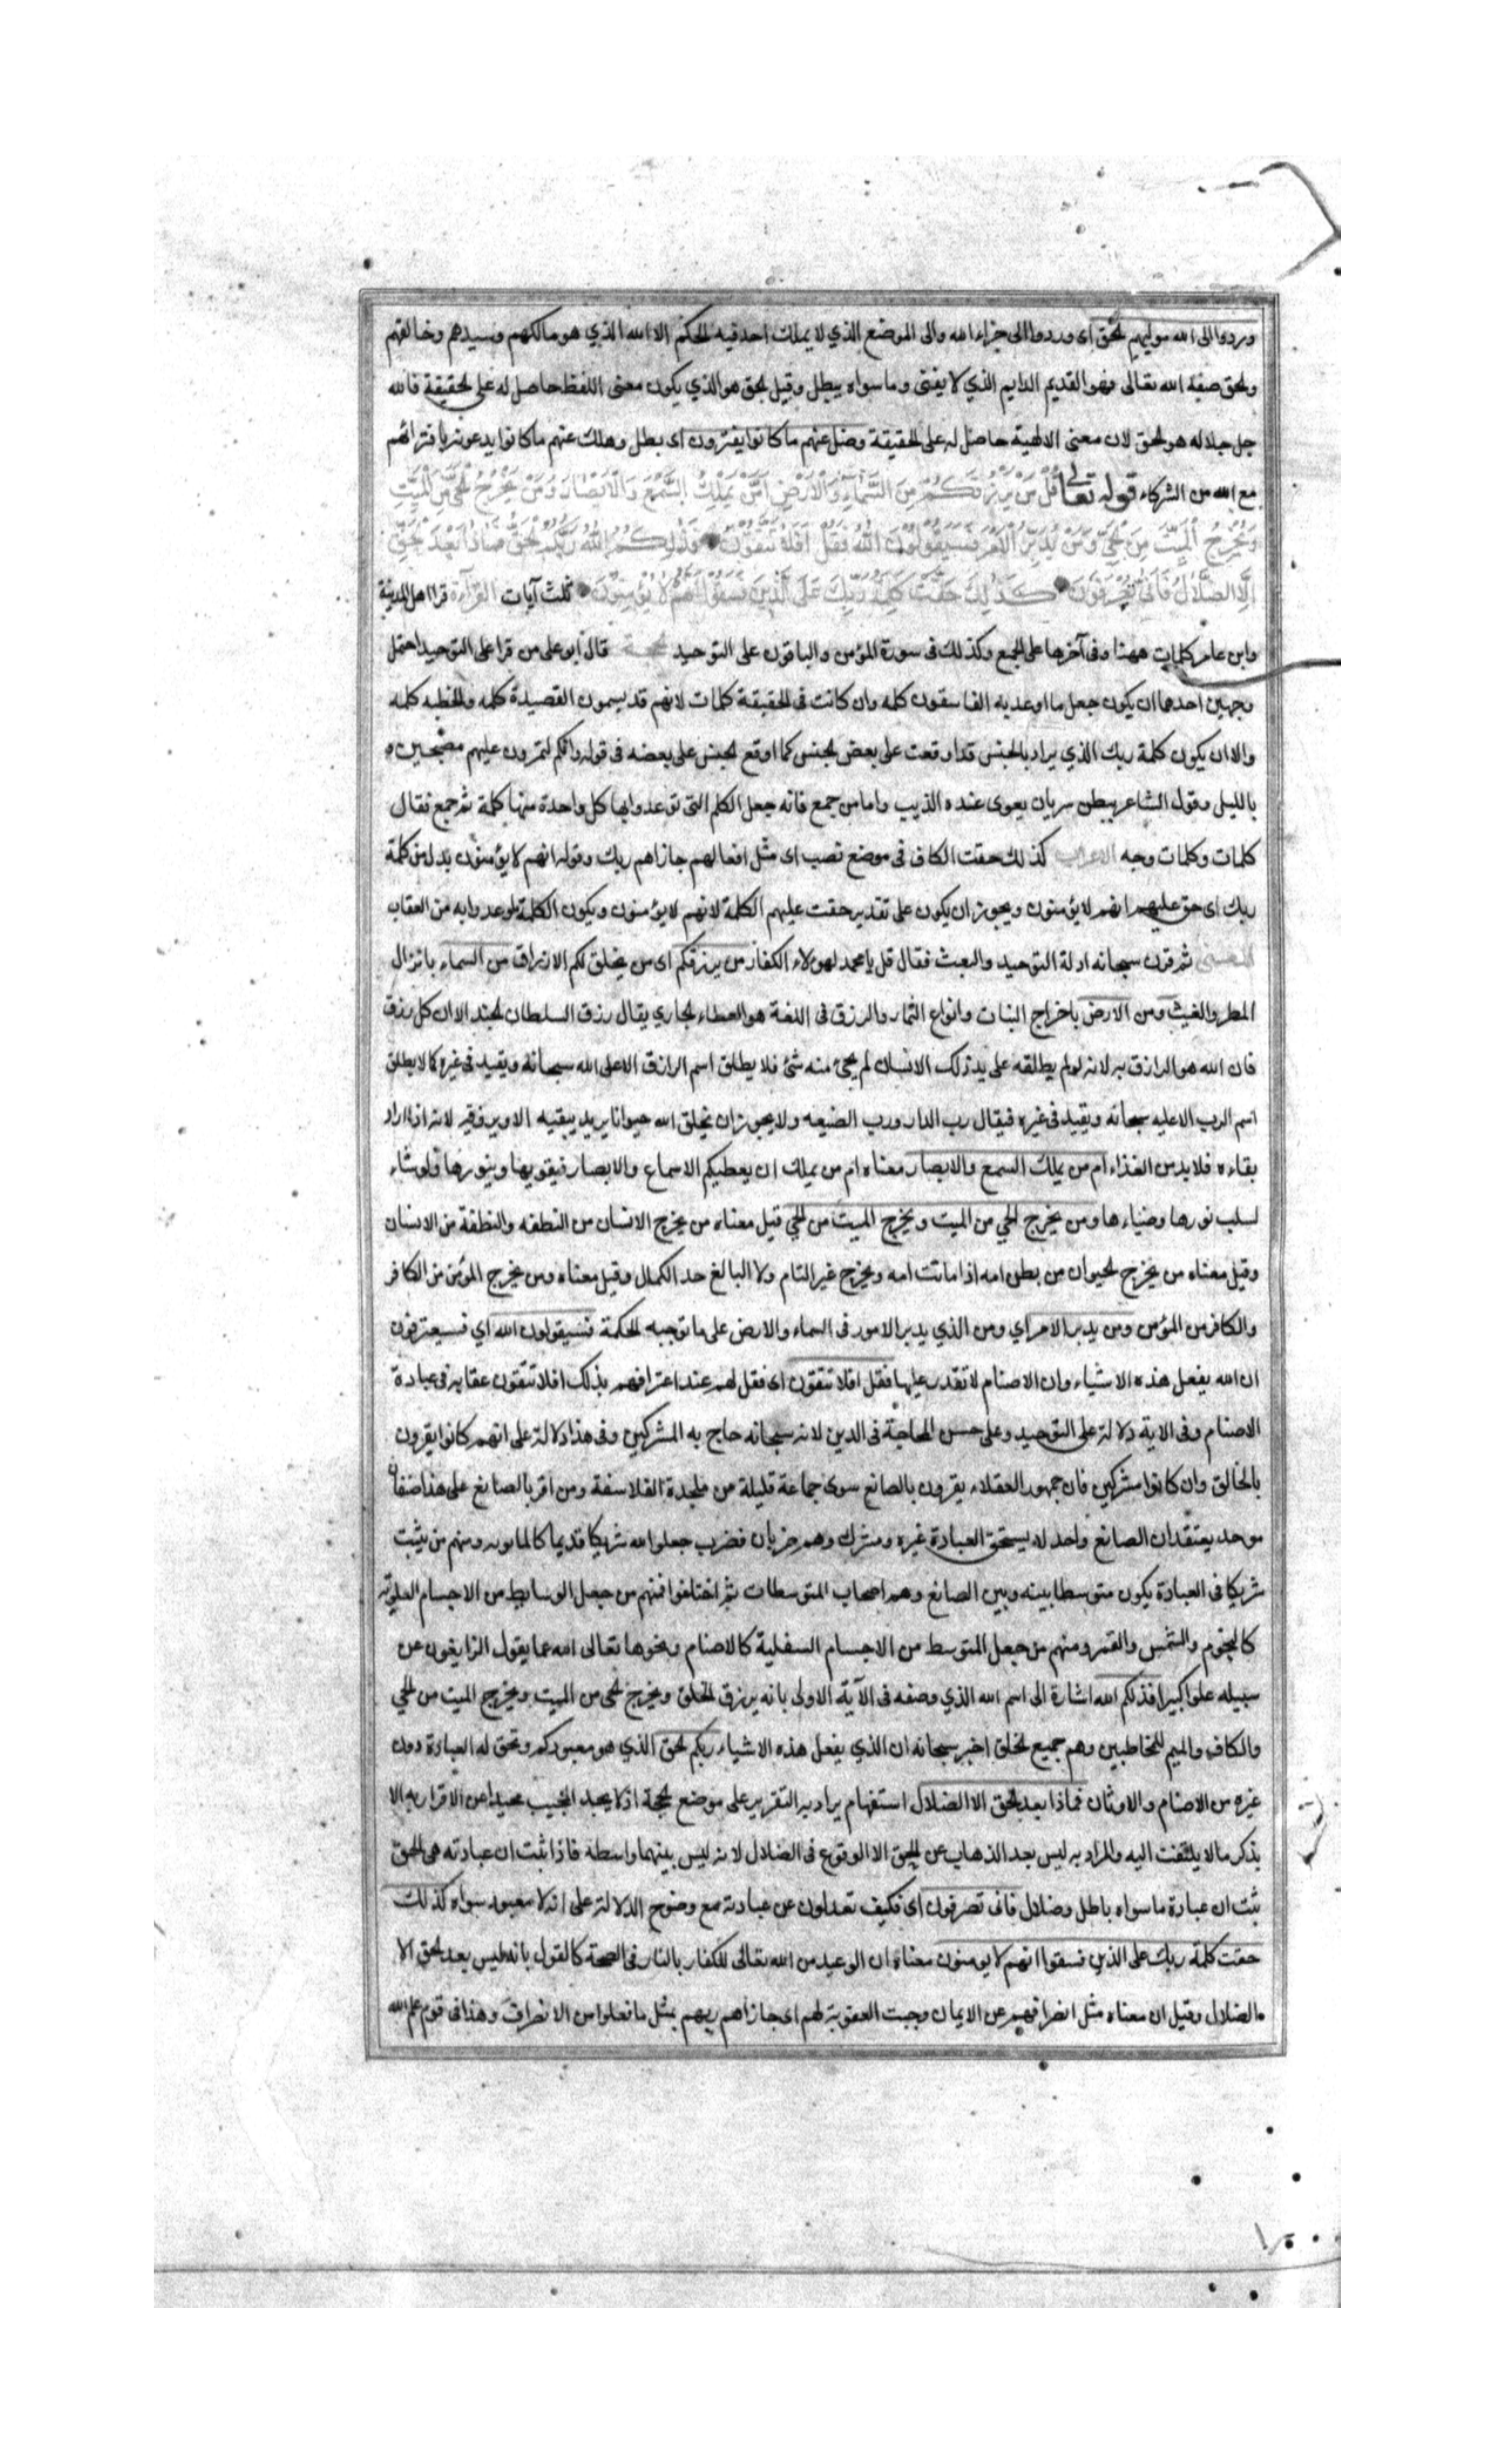 وردوا الى الله موليهم الحق اى وردوا الى جزاء الله والى الموضع الذي لا يملك احد فيه الحكم الا الله الذي هو مالكهم وسيدهم وخالقهم
والحق صفة الله تعالى فهو القديم الدايم الذي لا يفنى وما سواه يبطل وقيل الحق هو الذي يكون معنى اللفظ حاصل له على الحقيقة فالله
جل جلاله هو الحق لان معنى الالهية حاصل له على الحقيقة وضل عنهم ما كانوا يفترون اى بطل وهلك عنهم ما كانوا يدعونه بافترائهم
مع الله من الشركاء قوله تعالى قُلْ مَنْ يَرْزُقُكُمْ مِنَ السَّمَاءِ وَالْاَرْضِ اَمَّنْ يَمْلِكُ السَّمْعَ وَالْاَبْصَارَ وَمَنْ يُخْرِجُ الْحَيَّ مِنَ الْمَيِّتِ
وَيُخْرِجُ الْمَيِّتَ مِنَ الْحَيِّ وَمَنْ يُدَبِّرُ الْاَمْرَ فَسَيَقُولُونَ اللّٰهُ فَقُلْ اَفَلَا تَتَّقُونَ فَذٰلِكُمُ اللّٰهُ رَبُّكُمُ الْحَقُّ فَمَاذَا بَعْدَ الْحَقِّ
اِلَّا الضَّلَالُ فَاَنّٰى تُصْرَفُونَ كَذٰلِكَ حَقَّتْ كَلِمَةُ رَبِّكَ عَلَى الَّذِينَ فَسَقُوا اَنَّهُمْ لَا يُؤْمِنُونَ ثلث آيات القرآءة قرا اهل المدينة
وابن عامر كلمات ههنا وفى آخرها على الجمع وكذلك فى سورة المؤمن والباقون على التوحيد الحجة قال ابو على من قرا على التوحيد احتمل
وجهين احدهما ان يكون جعل ما اوعد به الفاسقون كلمه وان كانت فى الحقيقة كلمات لانهم قد يسمون القصيدة كلمه والخطبه كلمه
والا ان يكون كلمة ربك الذي يراد بالجنس قد اوقعت على بعض الجنس كما اوقع الجنس على بعضه فى قوله وانكم لتمرون عليهم مصبحين ه
بالليل وقول الشاعر ببطن سريان يعوى عنده الذيب واما من جمع فانه جعل الكلم التى توعدوا بها كل واحدة منها كلمة ثم جمع فقال
كلمات وكلمات وجه الاعراب كذلك حقت الكاف فى موضع نصب اى مثل افعالهم جازاهم ربك وقوله انهم لا يؤمنون بدل من كلمة
ربك اى حق عليهم انهم لا يؤمنون ويجوز ان يكون على تقدير حقت عليهم الكلمة لانهم لا يؤمنون ويكون الكلمة ما وعدوا به من العقاب
المعنى ثم قرن سبحانه ادلة التوحيد والبعث فقال قل يا محمد لهولاء الكفار من يرزقكم اى من يخلق لكم الارزاق من السماء بانزال
المطر والغيث ومن الارض باخراج النبات وانواع الثمار والرزق فى اللغة هو العطاء الجاري يقال رزق السلطان الجند الا ان كل رزق
فان الله هو الرازق به لانه لو لم يطلقه على يد ذلك الانسان لم يجئ منه شئ فلا يطلق اسم الرازق الا على الله سبحانه ويقيد فى غيره كما لا يطلق
اسم الرب الا عليه سبحانه ويقيد فى غيره فيقال رب الدار ورب الضيعه ولا يجوز ان يخلق الله حيوانا يريد يبقيه الا ويرزقه لانه اذا اراد
بقاءه فلا بد من الغذاء ام من يملك السمع والابصار معناه ام من يملك ان يعطيكم الاسماع والابصار فيقويها وينورها ولو شاء
لسلب نورها وضياءها ومن يخرج الحي من الميت ويخرج الميت من الحي قيل معناه من يخرج الانسان من النطفه والنطفة من الانسان
وقيل معناه من يخرج الحيوان من بطن امه اذا ماتت امه ويخرج غير التام ولا البالغ حد الكمال وقيل معناه ومن يخرج المؤمن من الكافر
والكافر من المؤمن ومن يدبر الامر اي ومن الذي يدبر الامور فى السماء والارض على ما توجبه الحكمة فسيقولون الله اي فسيعترفون
ان الله يفعل هذه الاشياء وان الاصنام لا تقدر عليها فقل افلا تتقون اى فقل لهم عند اعترافهم بذلك افلا تتقون عقابه فى عبادة
الاصنام وفى الاية دلالة على التوحيد وعلى حسن المحاجة فى الدين لانه سبحانه حاج به المشركين وفى هذا دلالة على انهم كانوا يقرون
بالخالق وان كانوا مشركين فان جمهور العقلاء يقرون بالصانع سوى جماعة قليلة من ملحدة الفلاسفة ومن اقر بالصانع على هذا صنفان
موحد يعتقد ان الصانع واحد لا يستحق العبادة غيره ومشرك وهم ضربان فضرب جعلوا لله شريكا قديما كالمانويه ومنهم من يثبت
شريكا فى العبادة يكون متوسطا بينه وبين الصانع وهم اصحاب المتوسطات ثم اختلفوا فمنهم من جعل الوسايط من الاجسام العلوية
كالنجوم والشمس والقمر ومنهم من جعل المتوسط من الاجسام السفلية كالاصنام ونحوها تعالى الله عما يقول الزايغون عن
سبيله علوا كبيرا فذلكم الله اشارة الى اسم الله الذي وصفه فى الآية الاولى بانه يرزق الخلق ويخرج الحى من الميت ويخرج الميت من الحي
والكاف والميم للمخاطبين وهم جميع الخلق اخبر سبحانه ان الذي يفعل هذه الاشياء ربكم الحق الذي هو معبودكم وتحق له العبادة دون
غيره من الاصنام والاوثان فماذا بعد الحق الا الضلال استفهام يراد به التقرير على موضع الحجة اذ لا يجد المجيب محيدا عن الاقرار به الا
بذكر ما لا يلتفت اليه والمراد به ليس بعد الذهاب عن الحق الا الوقوع فى الضلال لانه ليس بينهما واسطة فاذا ثبت ان عبادته هى الحق
ثبت ان عبادة ما سواه باطل وضلال فانى تصرفون اى فكيف تعدلون عن عبادته مع وضوح الدلالة على انه لا معبود سواه كذلك
حقت كلمة ربك على الذين فسقوا انهم لا يومنون معناه ان الوعيد من الله تعالى للكفار بالنار فى الصحة كالقول بانه ليس بعد الحق الا
الضلال وقيل ان معناه مثل انصرافهم عن الايمان وجبت العقوبة لهم اى جازاهم ربهم بمثل ما فعلوا من الانصراف وهذا فى قوم علم الله